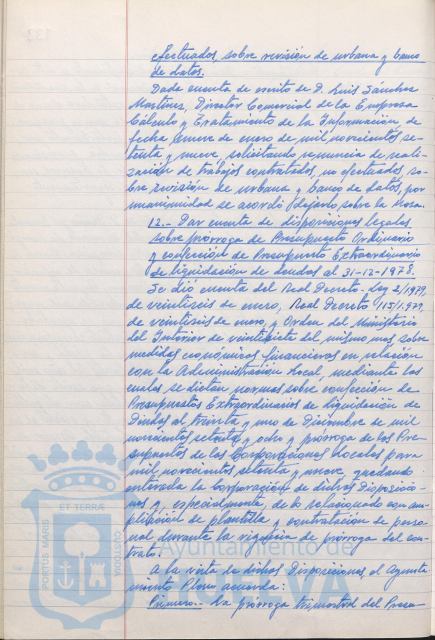 efectuados, sobre revisión de urbana y banco
de datos.
Dada cuenta de escrito de D. Luis Sánchez
Martínez, Director Comercial de la Empresa
Cálculo y Tratamiento de la Información, de
fecha nueve de enero de mil novecientos se-
tenta y nueve, solicitando renuncia de reali-
zación de trabajos contratados, no efectuados so-
bre revisión de urbana y banco de datos, por
unanimidad se acordó: dejarlo sobre la Mesa.
12.- Dar cuenta de disposiciones legales
sobre prórroga de Presupuesto Ordinario
y confección de Presupuesto Extraordinario
de liquidación de deudas al 31-12-1978.
Se dió cuenta del Real Decreto-Ley 2/1979,
de veintiseis de enero, Real Decreto 115/1.979,
de veintiseis de enero y Orden del Ministerio
del Interior de veintisiete del mismo mes sobre
medidas económicos financieras en relación
con la Administración Local, mediante los
cuales se dictan normas sobre confección de
Presupuestos Extraordinarios de liquidación de
Deudas al treinta y uno de Diciembre de mil
novecientos setenta y ocho y prórroga de los Pre-
supuestos de las Corporaciones Locales para
mil novecientos setenta y nueve, quedando
enterada la Corporación de dichas Disposicio-
nes y, especialmente, de lo relacionado con am-
pliación de plantilla y contratación de perso-
nal durante la vigencia de prórroga del con-
trato.
A la vista de dichas Disposiciones, el Ayunta-
miento Pleno acuerda:
Primero.- La prórroga trimestral del Presu-
PORTUS MARIS
ET TERRAE
CUSTODIA
Ayuntamiento de